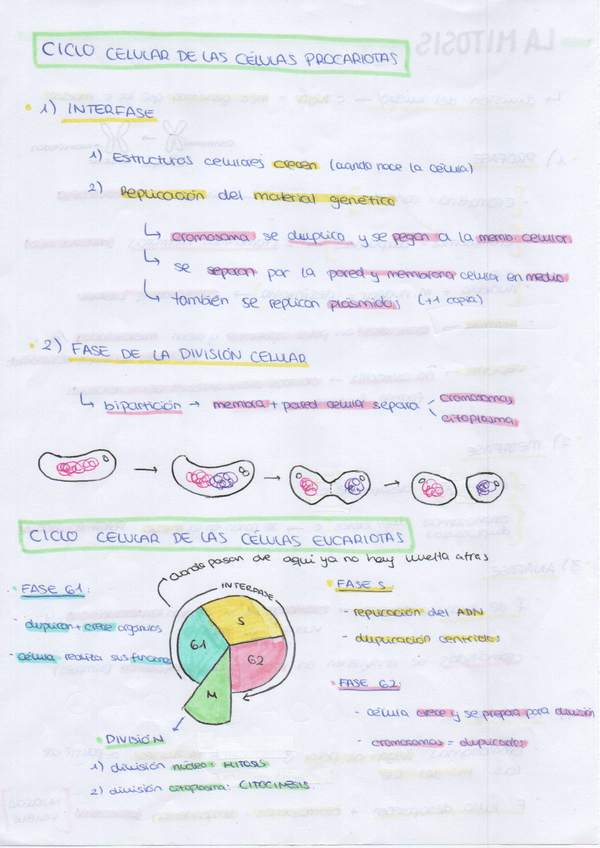 CICLO CELULAR DE LAS CÉLULAS PROCARIOTAS
1) INTERFASE
1) Estructuras celulares crecen (cuando nace la célula)
2) Replicación del material genético
↳ cromosoma se duplica y se pegan a la memb. celular.
↳ se separan por la pared y membrana celular en medio
↳ también se replican plásmidos (+1 copia)
2) FASE DE LA DIVISIÓN CELULAR
↳ bipartición → membra + pared celular separa < cromosomas
citoplasma
CICLO CELULAR DE LAS CÉLULAS EUCARIOTAS
cuando pasan de aquí ya no hay vuelta atrás
INTERFASE
S
G1
G2
M
FASE G1:
- duplican + crece orgánulos
- célula realiza sus funciones
FASE S
- replicación del ADN
- duplicación centriolos
FASE G2:
- célula crece y se prepara para división
- cromosomas = duplicados
DIVISIÓN
1) división núcleo: MITOSIS
2) división citoplasma: CITOCINESIS.